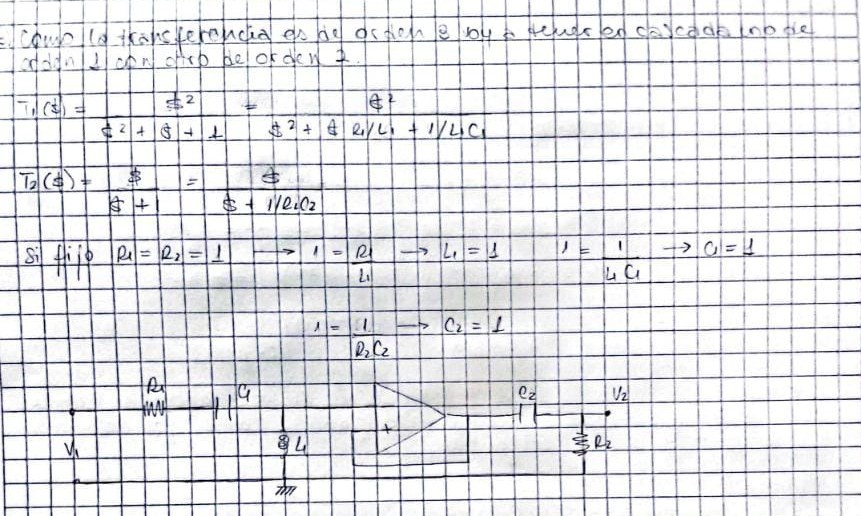 Como la transferencia es de orden 3 voy a tener en cascada uno de
orden 1 con otro de orden 2.
T₁($) = $² / ($² + $ + 1) = $² / ($² + $ R₁/L₁ + 1/L₁C₁)
T₂($) = $ / ($ + 1) = $ / ($ + 1/R₂C₂)
Si fijo R₁ = R₂ = 1 → 1 = R₁/L₁ → L₁ = 1 1 = 1/(L₁C₁) → C₁ = 1
1 = 1/(R₂C₂) → C₂ = 1
R₁ C₁ C₂ V₂
V₁ L₁ + R₂